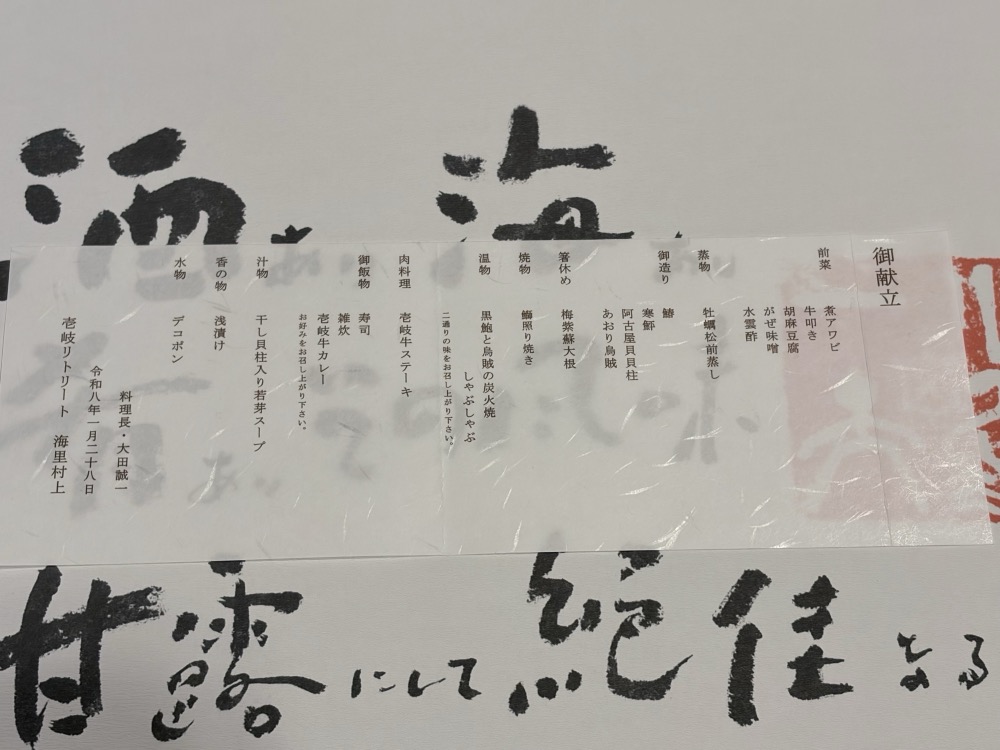 御献立
前菜
煮アワビ
牛叩き
胡麻豆腐
がぜ味噌
水雲酢
蒸物
牡蠣松前蒸し
御造り
鰆
寒鰤
阿古屋貝貝柱
あおり烏賊
箸休め
梅紫蘇大根
焼物
鰤照り焼き
温物
黒鮑と烏賊の炭火焼
しゃぶしゃぶ
二通りの味をお召し上がり下さい。
肉料理
壱岐牛ステーキ
御飯物
寿司
雑炊
壱岐牛カレー
お好みをお召し上がり下さい。
汁物
干し貝柱入り若芽スープ
香の物
浅漬け
水物
デコポン
料理長・大田誠一
令和八年一月二十八日
壱岐リトリート 海里村上
海
酒
絶佳なる
甘露にして